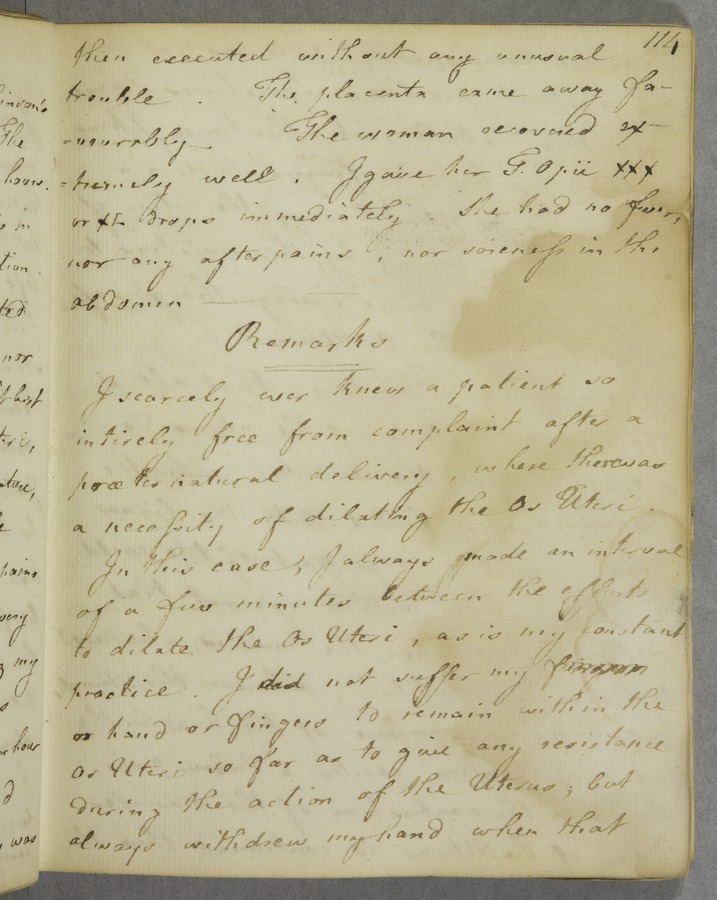 114
then executed without any unusual
trouble . The placenta came away fa-
-vourably. The woman recovered ex-
-tremely well . I gave her T. Opii xxx
or xl drops immediately . She had no fever,
nor any after pains ; nor soreness in the
abdomen
Remarks
I scarcely ever knew a patient so
intirely free from complaint after a
præternatural delivery , where there was
a necessity of dilating the Os Uteri .
In this case, I always made an interval
of a few minutes between the efforts
to dilate the Os Uteri , as is my constant
practice . I did not suffer my
or hand or fingers to remain within the
Os Uteri so far as to give any resistance
during the action of the Uterus ; but
always withdrew my hand when that
inson's
The
hours.
in
tion .
ted
nor
ture,
pains
very
my
hour
d
was